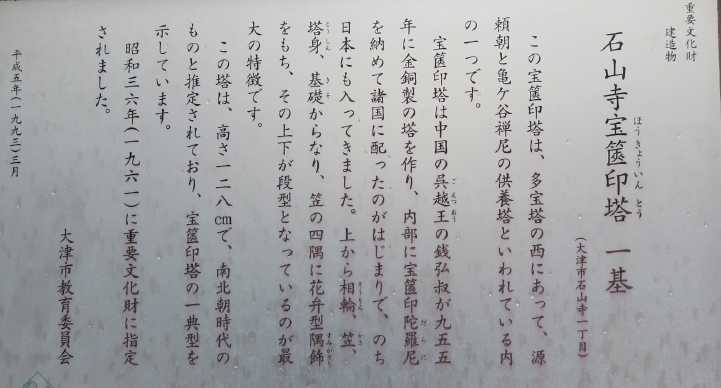 重要文化財
建造物
石山寺宝篋印塔 一基
(大津市石山寺一丁目)
この宝篋印塔は、多宝塔の西にあって、源
頼朝と亀ケ谷禅尼の供養塔といわれている内
の一つです。
宝篋印塔は中国の呉越王の銭弘叔が九五五
年に金銅製の塔を作り、内部に宝篋印陀羅尼
を納めて諸国に配ったのがはじまりで、のち
日本にも入ってきました。上から相輪、笠、
塔身、基礎からなり、笠の四隅に花弁型隅飾
をもち、その上下が段型となっているのが最
大の特徴です。
この塔は、高さ一二八cmで、南北朝時代の
ものと推定されており、宝篋印塔の一典型を
示しています。
昭和三六年(一九六一)に重要文化財に指定
されました。
大津市教育委員会
平成五年(一九九三)三月